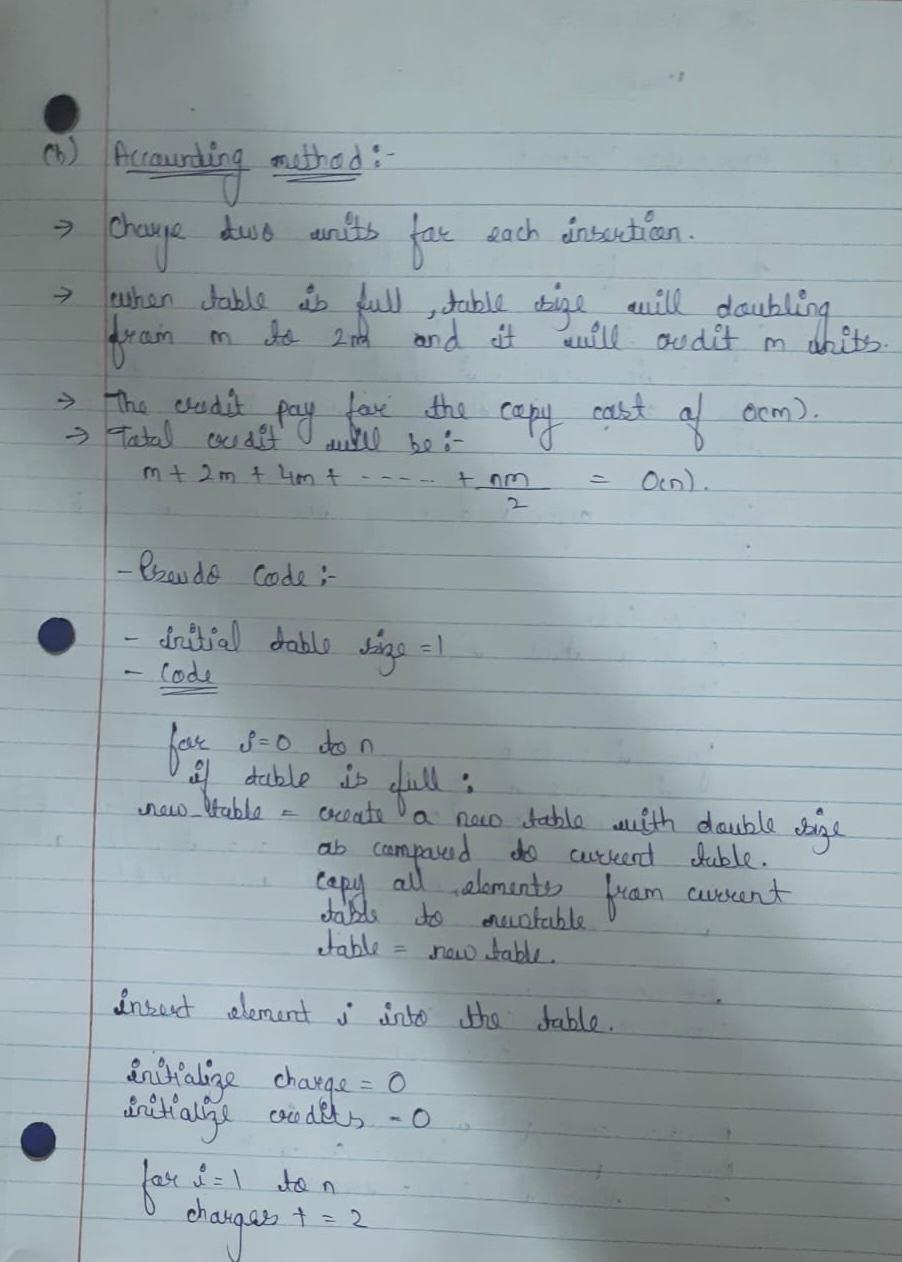 (b) Accounting method :-
→ Charge two units for each insertion.
→ when table is full, table size will doubling
from m to 2m and it will credit m units.
→ The credit pay for the copy cost of O(m).
→ Total credit will be :-
m + 2m + 4m + ----- + nm/2 = O(n).
- Pseudo Code :-
- initial table size = 1
- Code
for i=0 to n
if table is full :
new_table = create a new table with double size
as compared to current table.
copy all elements from current
table to newtable
table = new table.
insert element i into the table.
initialize charge = 0
initialize credits - 0
for i = 1 to n
charges + = 2